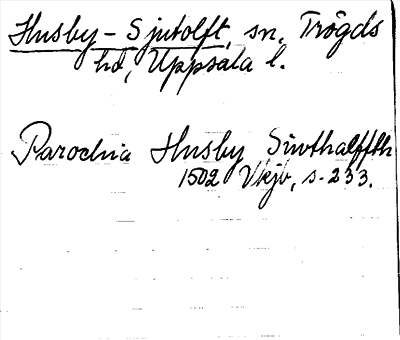 Husby-Sjutolft, sn, Trögds
hd, Uppsala l.
Parochia Husby Siwthalffth
1502 Vkjb, s. 233.